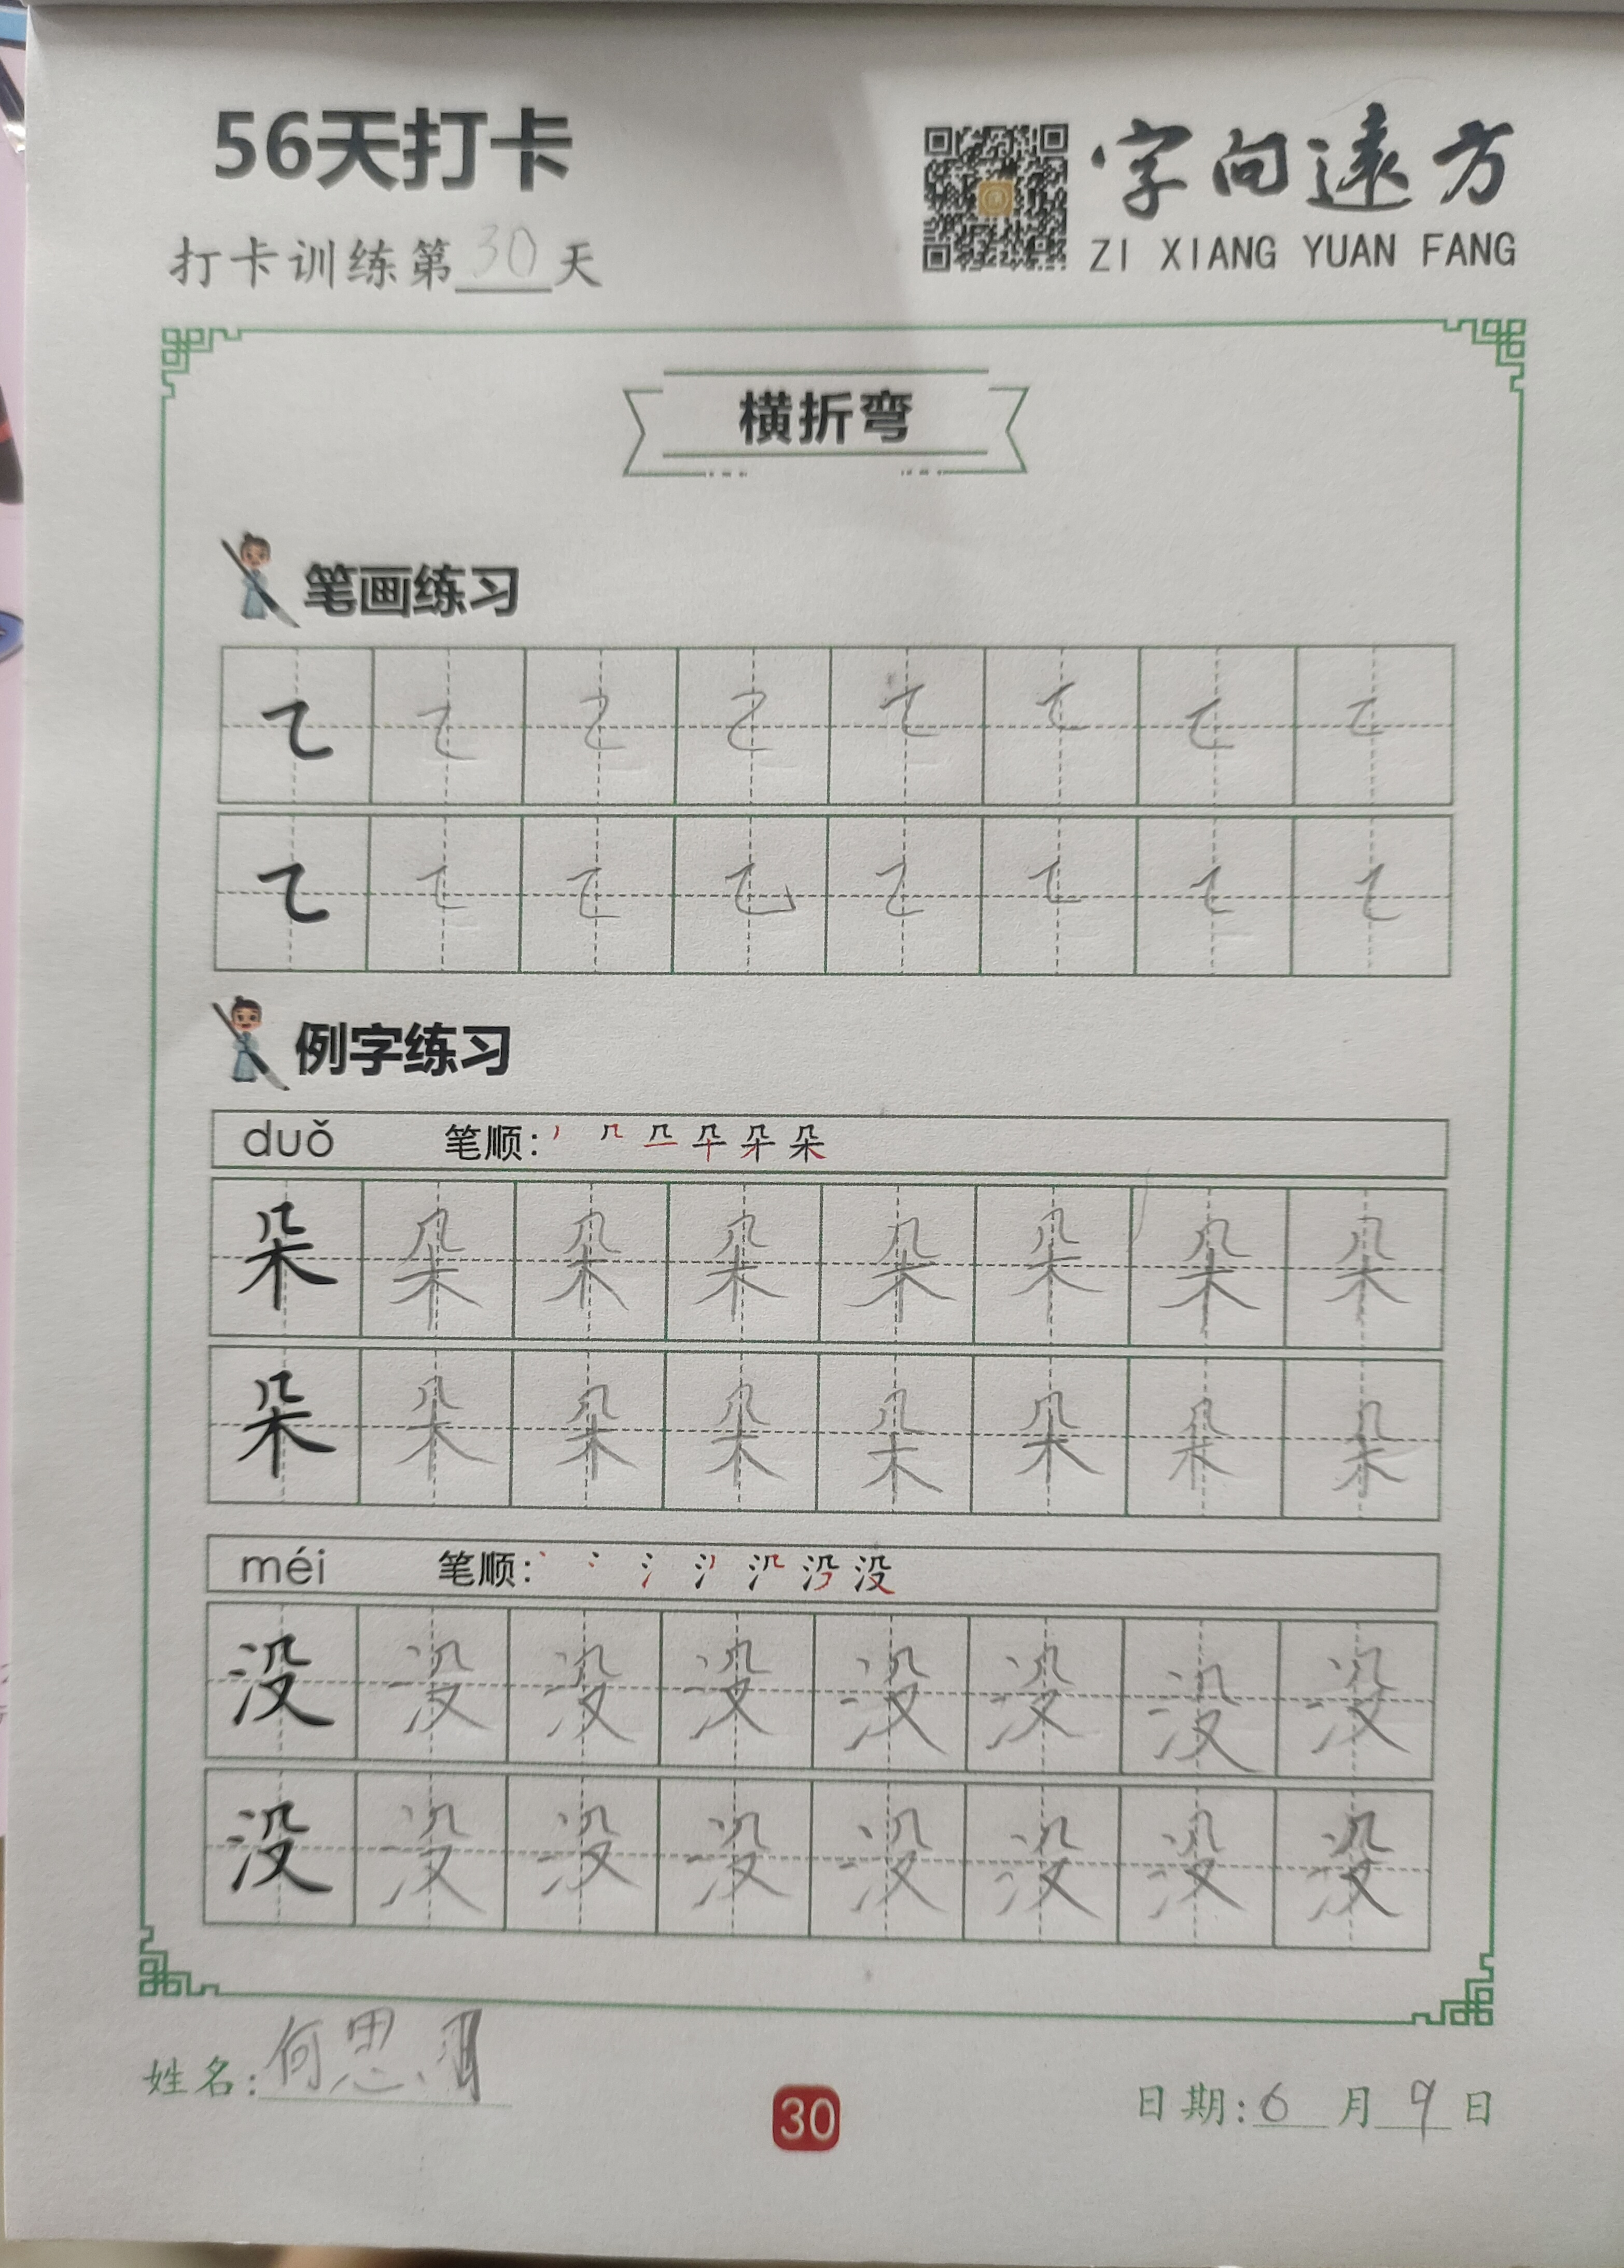 56天打卡
字向遠方
ZI XIANG YUAN FANG
打卡训练第30天
横折弯
笔画练习
㇍ ㇍ ㇍ ㇍ ㇍ ㇍ ㇍ ㇍
㇍ ㇍ ㇍ ㇍ ㇍ ㇍ ㇍ ㇍
例字练习
duǒ 笔顺:
朵 朵 朵 朵 朵 朵 朵 朵
朵 朵 朵 朵 朵 朵 朵 朵
méi 笔顺:
没 没 没 没 没 没 没 没
没 没 没 没 没 没 没 没
姓名:何思
30
日期:6月9日